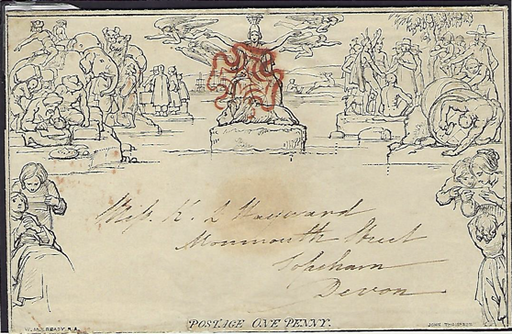 Miss K. L Hayward
Monmouth Street
Topsham
Devon
POSTAGE ONE PENNY.
W. MULREADY, R.A.
JOHN THOMPSON